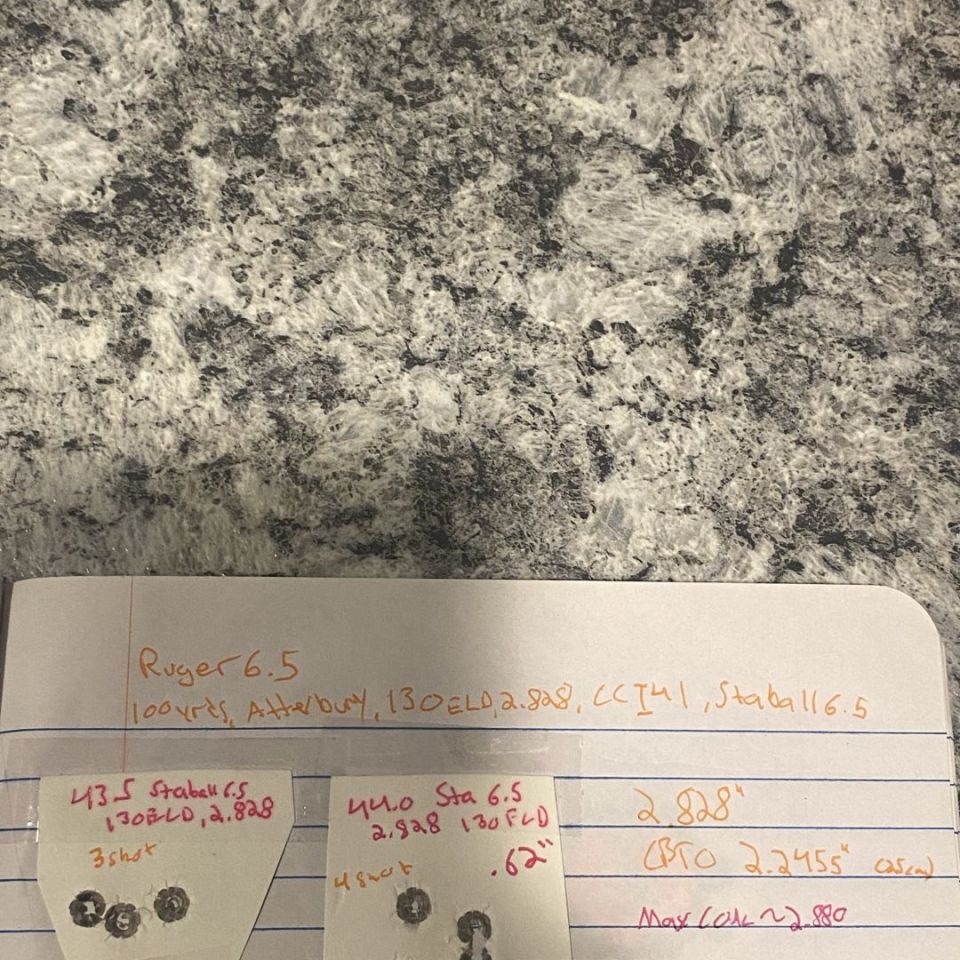 Ruger 6.5
100yrds, Atterbury, 130ELD, 2.828, CCI41, Staball 6.5
43.5 Staball 6.5
130ELD, 2.828
3 shot
44.0 Sta 6.5
2.828 130 ELD
.62"
4 shot
2.828"
CBTO 2.2455"
Max COAL ~2.880